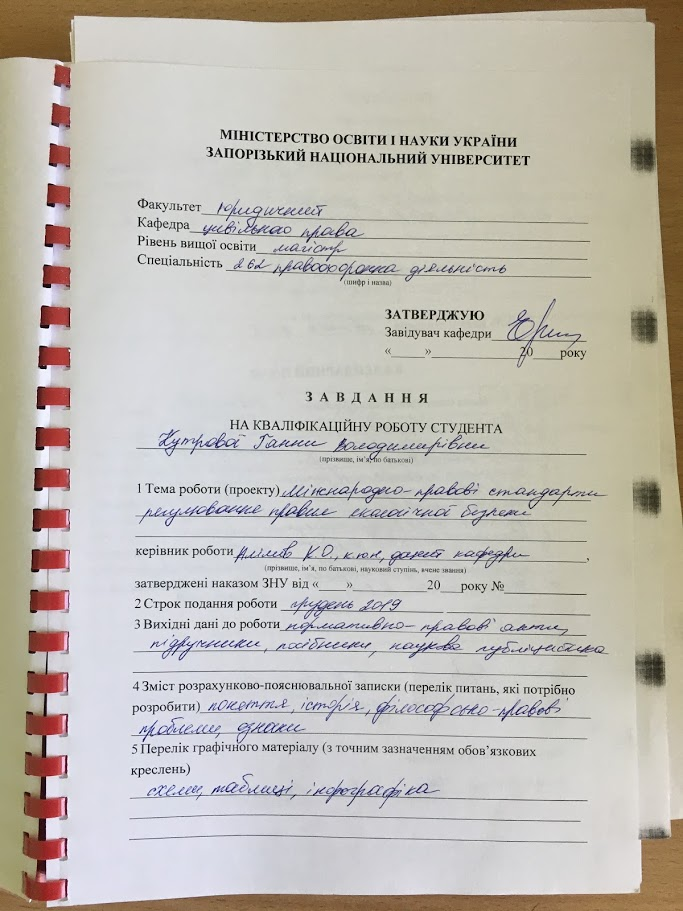 МІНІСТЕРСТВО ОСВІТИ І НАУКИ УКРАЇНИ
ЗАПОРІЗЬКИЙ НАЦІОНАЛЬНИЙ УНІВЕРСИТЕТ
Факультет юридичний
Кафедра цивільного права
Рівень вищої освіти магістр
Спеціальність 262 правоохоронна діяльність
(шифр і назва)
ЗАТВЕРДЖУЮ
Завідувач кафедри
«_____»______________20____року
З А В Д А Н Н Я
НА КВАЛІФІКАЦІЙНУ РОБОТУ СТУДЕНТА
Ганни Володимирівни
(прізвище, ім’я, по батькові)
1 Тема роботи (проекту) Міжнародно-правові стандарти
регулювання правил екологічної безпеки
керівник роботи К.О., к.ю.н., доцент кафедри,
(прізвище, ім’я, по батькові, науковий ступінь, вчене звання)
затверджені наказом ЗНУ від «____»___________20___року №
2 Строк подання роботи грудень 2019
3 Вихідні дані до роботи нормативно-правові акти,
підручники, посібники, наукова публіцистика
4 Зміст розрахунково-пояснювальної записки (перелік питань, які потрібно
розробити) поняття, історія, філософсько-правові
проблеми, ознаки
5 Перелік графічного матеріалу (з точним зазначенням обов’язкових
креслень)
схеми, таблиці, інфографіка